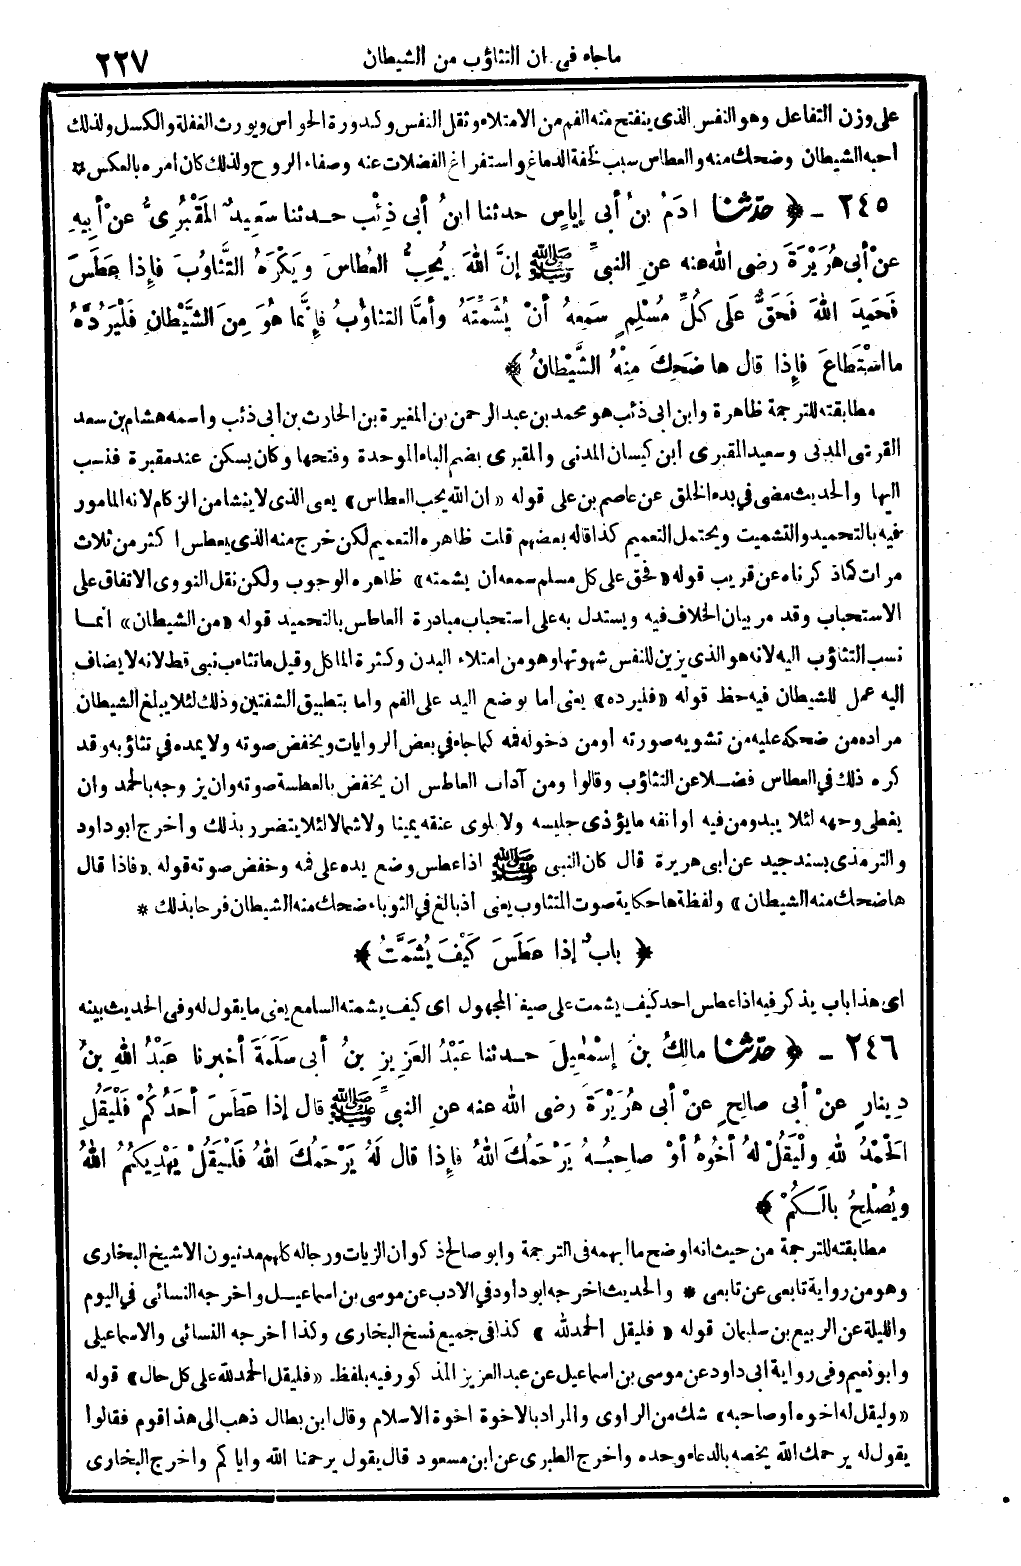 ماجاء في ان التثاؤب من الشيطان ٢٢٧
على وزن التفاعل وهو النفس الذى ينفتح منه الفم من الامتلاء وثقل النفس وكدورة الحواس ويورث الغفلة والكسل ولذلك
احبه الشيطان وضحك منه والعطاس سبب لخفة الدماغ واستفراغ الفضلات عنه وصفاء الروح ولذلك كان امره بالعكس *
٢٤٥ - ﴿ حدثنا ادَمُ بنُ أبى إياسٍ حدثنا ابنُ أبى ذِئْبٍ حدثنا سَعِيدٌ المَقْبُرِىُّ عنْ أبِيهِ
عنْ أبى هُرَيْرَةَ رضى الله عنه عنِ النبىِّ ﷺ إنَّ اللهَ يُحِبُّ العُطاسَ ويَكْرَهُ التَّثاوُبَ فإِذا عطَسَ
فَحَمِدَ اللهَ فَحَقٌّ عَلَى كُلِّ مُسْلِمٍ سَمِعهُ أنْ يُشَمِّتَهُ وأمَّا التثاوُبُ فإِنَّما هُوَ مِنَ الشَّيْطانِ فَلْيَرُدَّهُ
ما اسْتَطاعَ فإِذا قال ها ضَحِكَ مِنْهُ الشَّيْطانُ ﴾
مطابقته للترجمة ظاهرة وابن ابى ذئب هو محمد بن عبد الرحمن بن المغيرة بن الحارث بن أبى ذئب واسمه هشام بن سعد
القرشى المدنى وسعيد المقبرى ابن كيسان المدنى والمقبرى بضم الباء الموحدة وفتحها وكان يسكن عند مقبرة فنسب
اليها والحديث مضى في بدء الخلق عن عاصم بن على قوله « ان الله يحب العطاس» يعنى الذى لا ينشأ من الزكام لانه المأمور
فيه بالتحميد والتشميت ويحتمل التعميم كذا قاله بعضهم قلت ظاهره التعميم لكن خرج منه الذى يعطس اكثر من ثلاث
مرات كما ذكرناه عن قريب قوله «فحق على كل مسلم سمعه أن يشمته» ظاهره الوجوب ولكن نقل النووى الاتفاق على
الاستحباب وقد مر بيان الخلاف فيه ويستدل به على استحباب مبادرة العاطس بالتحميد قوله «من الشيطان» انما
نسب التثاؤب اليه لانه هو الذى يزين للنفس شهوتها وهو من امتلاء البدن وكثرة المأكل وقيل ما تثاءب نبى قط لانه لا يضاف
اليه عمل للشيطان فيه حظ قوله «فليرده» يعنى اما بوضع اليد على الفم واما بتطبيق الشفتين وذلك لئلا يبلغ الشيطان
مراده من ضحكه عليه من تشويه صورته أو من دخوله فمه كما جاء في بعض الروايات ويخفض صوته ولا يمده في تثاؤبه وقد
كره ذلك في العطاس فضلا عن التثاؤب وقالوا ومن آداب العاطس ان يخفض بالعطسة صوته وان يزوجه بالحمد وان
يغطى وجهه لئلا يبدو من فيه او انفه ما يؤذى جليسه ولا يلوى عنقه يمينا ولا شمالا لئلا يتضرر بذلك واخرج ابو داود
والترمذى بسند جيد عن ابى هريرة قال كان النبى ﷺ اذا عطس وضع يده على فمه وخفض صوته قوله «فاذا قال
ها ضحك منه الشيطان» ولفظة ها حكاية صوت المتثاوب يعنى أذ بالغ في الثوباء ضحك منه الشيطان فرحا بذلك *
﴿ بابٌ إذا عطَسَ كَيْفَ يُشَمَّتُ ﴾
اى هذا باب يذكر فيه اذا عطس احد كيف يشمت على صيغة المجهول اى كيف يشمته السامع يعنى ما يقول له وفى الحديث بينه
٢٤٦ - ﴿ حدثنا مالِكُ بنُ إسْمٰعِيلَ حدثنا عَبْدُ العَزِيزِ بنُ أبى سَلَمَةَ أخبرنا عَبْدُ اللهِ بنُ
دِينارٍ عنْ أبى صالِحٍ عنْ أبى هُرَيْرَةَ رضى الله عنه عنِ النبىِّ ﷺ قال إذا عَطَسَ أحَدُكُمْ فَلْيَقُلِ
الحَمْدُ للهِ ولْيَقُلْ لهُ أخُوهُ أوْ صاحِبُهُ يَرْحَمُكَ اللهُ فإِذا قال لَهُ يَرْحَمُكَ اللهُ فَلْيَقُلْ يَهْدِيكُمُ اللهُ
ويُصْلِحُ بالَكُمْ ﴾
مطابقته للترجمة من حيث انه اوضح ما ابهمه فى الترجمة وابو صالح ذكوان الزيات ورجاله كلهم مدنيون الا شيخ البخارى
وهو من رواية تابعى عن تابعى * والحديث اخرجه ابو داود في الادب عن موسى بن اسماعيل واخرجه النسائى في اليوم
والليلة عن الربيع بن سليمان قوله « فليقل الحمد لله » كذا فى جميع نسخ البخارى وكذا أخرجه النسائى والاسماعيلى
وابو نعيم وفى رواية ابى داود عن موسى بن اسماعيل عن عبد العزيز المذكور فيه بلفظ «فليقل الحمد لله على كل حال» قوله
«وليقل له اخوه أو صاحبه» شك من الراوى والمراد بالاخوة اخوة الاسلام وقال ابن بطال ذهب الى هذا قوم فقالوا
يقول له يرحمك الله يخصه بالدعاء وحده واخرج الطبرى عن ابن مسعود قال يقول يرحمنا الله واياكم واخرج البخارى